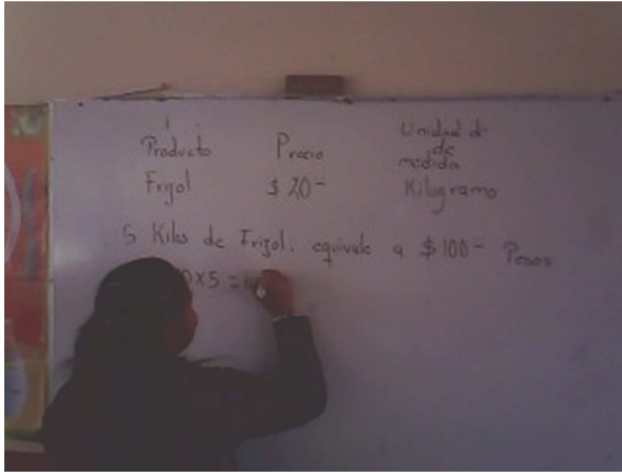 Producto Precio Unidad de
de
medida
Frijol $ 20- Kilogramo
5 Kilos de Frijol, equivale a $100- Pesos
0x5=1